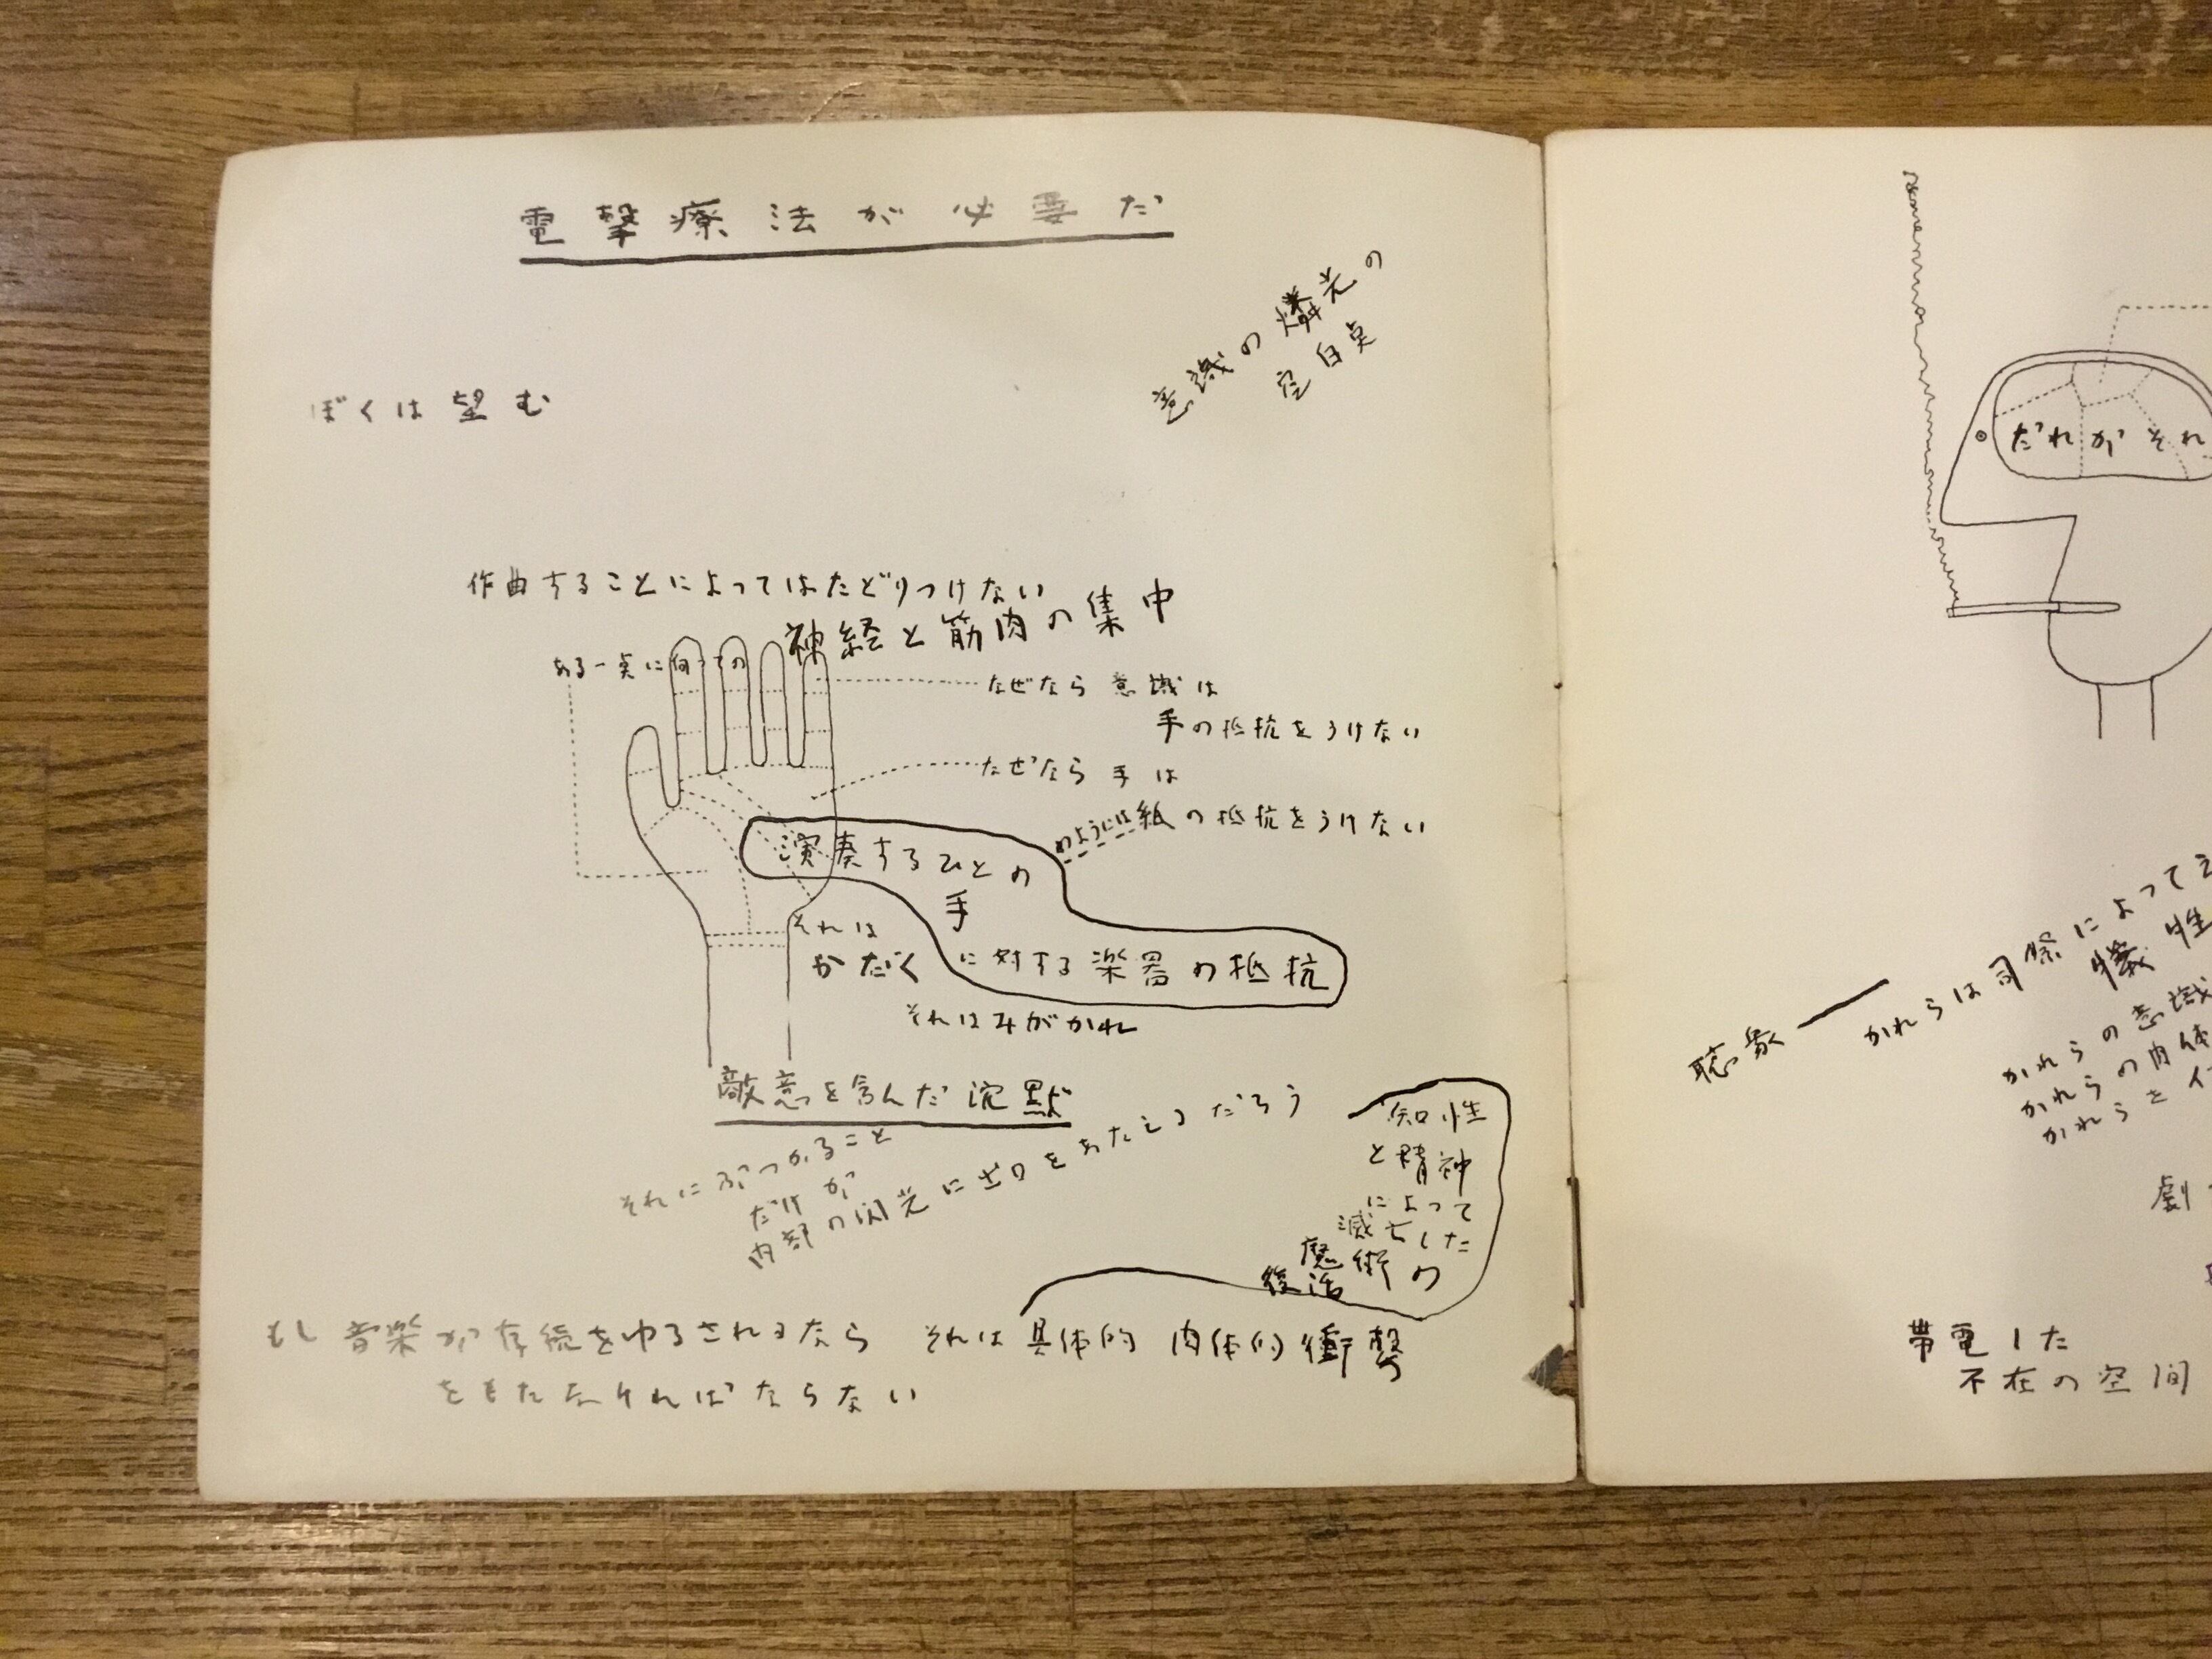 電撃療法が必要だ
意識の燐光の
空白点
ぼくは望む
作曲することによってはたどりつけない
神経と筋肉の集中
ある一点に向っての
なぜなら 意識は
手の抵抗をうけない
なぜなら 手は
のようには紙の抵抗をうけない
演奏するひとの
手
に対する楽器の抵抗
それは
かだく
それはみがかれ
敵意を含んだ沈黙
それにぶつかること
だけが
内部の閃光に出口をあたえるだろう
知性
と精神
によって
滅亡した
魔術の
復活
もし 音楽が存続をゆるされるなら それは具体的 肉体的衝撃
をもたなければならない
だれがそれ
聴衆
かれらは司祭によって
犠牲
かれらの意識
かれらの肉体
かれらを
劇
帯電した
不在の空間